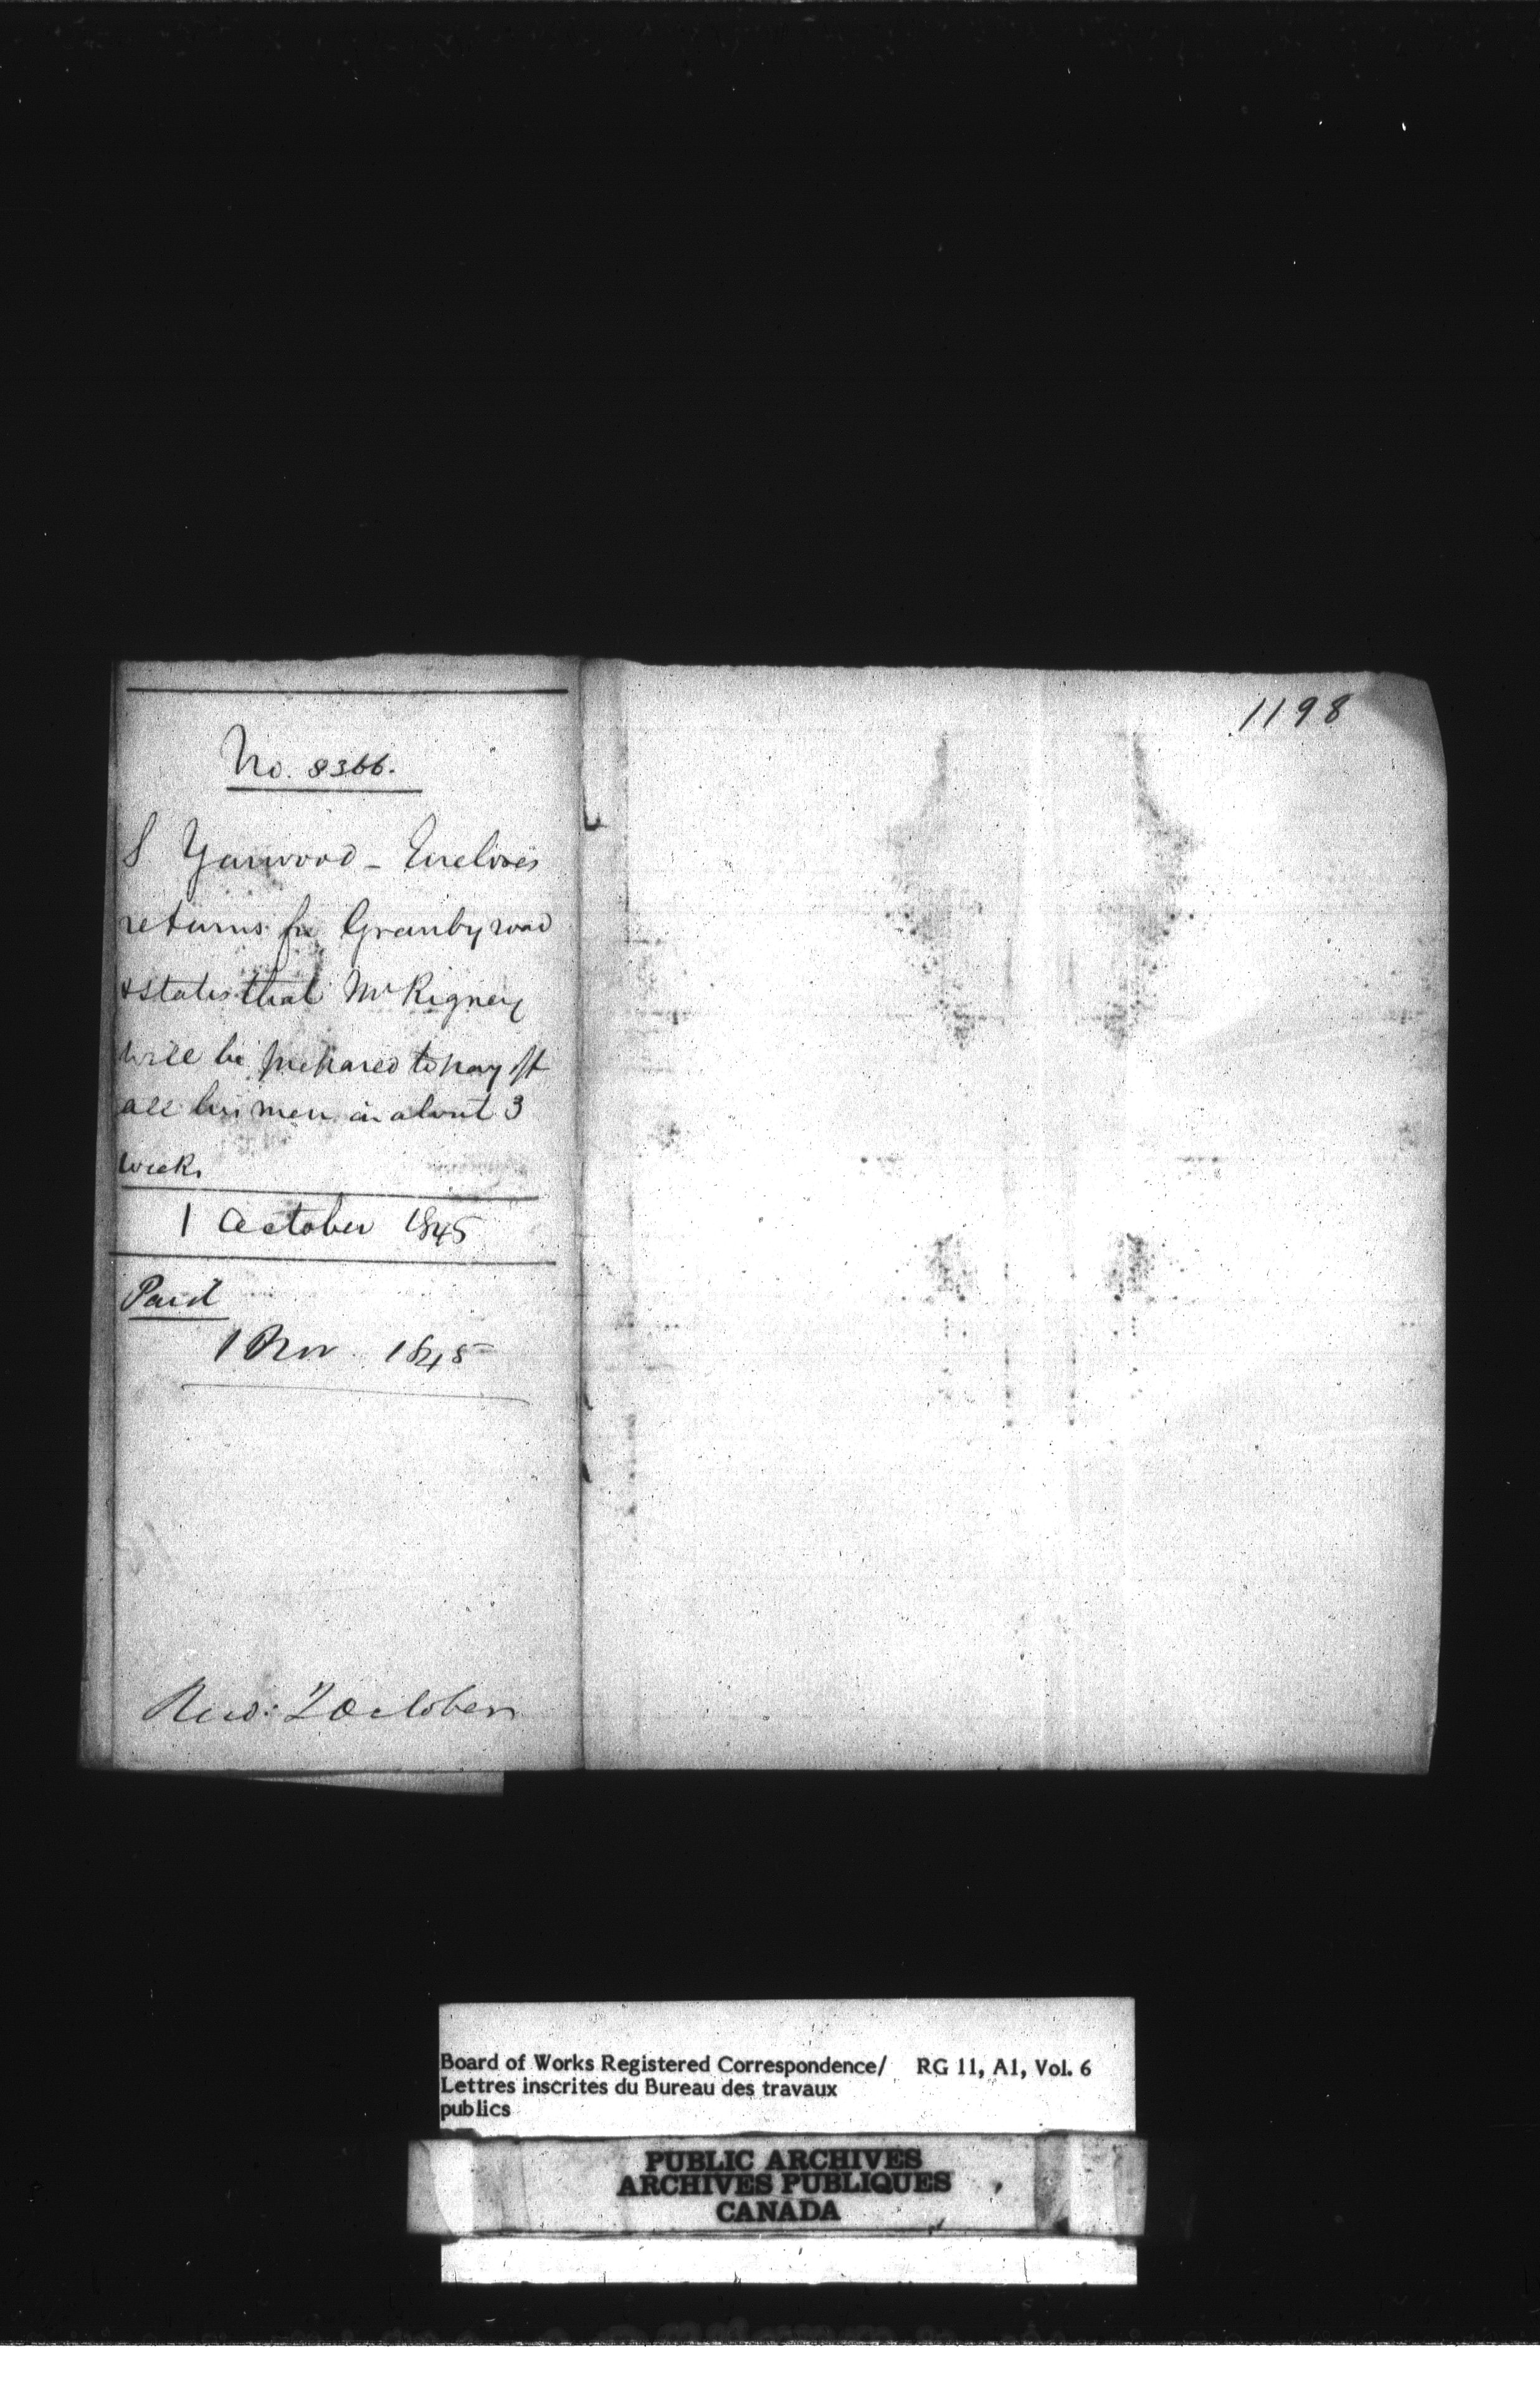 No. 8366.
S Yarwood - Encloses
returns for Granby road
& states that Mr Rigney
will be prepared to pay off
all his men in about 3
weeks
1 October 1845
Paid
1 Nov 1845
Recd: 2 October
1198
Board of Works Registered Correspondence/ RG 11, A1, Vol. 6
Lettres inscrites du Bureau des travaux
publics
PUBLIC ARCHIVES
ARCHIVES PUBLIQUES
CANADA